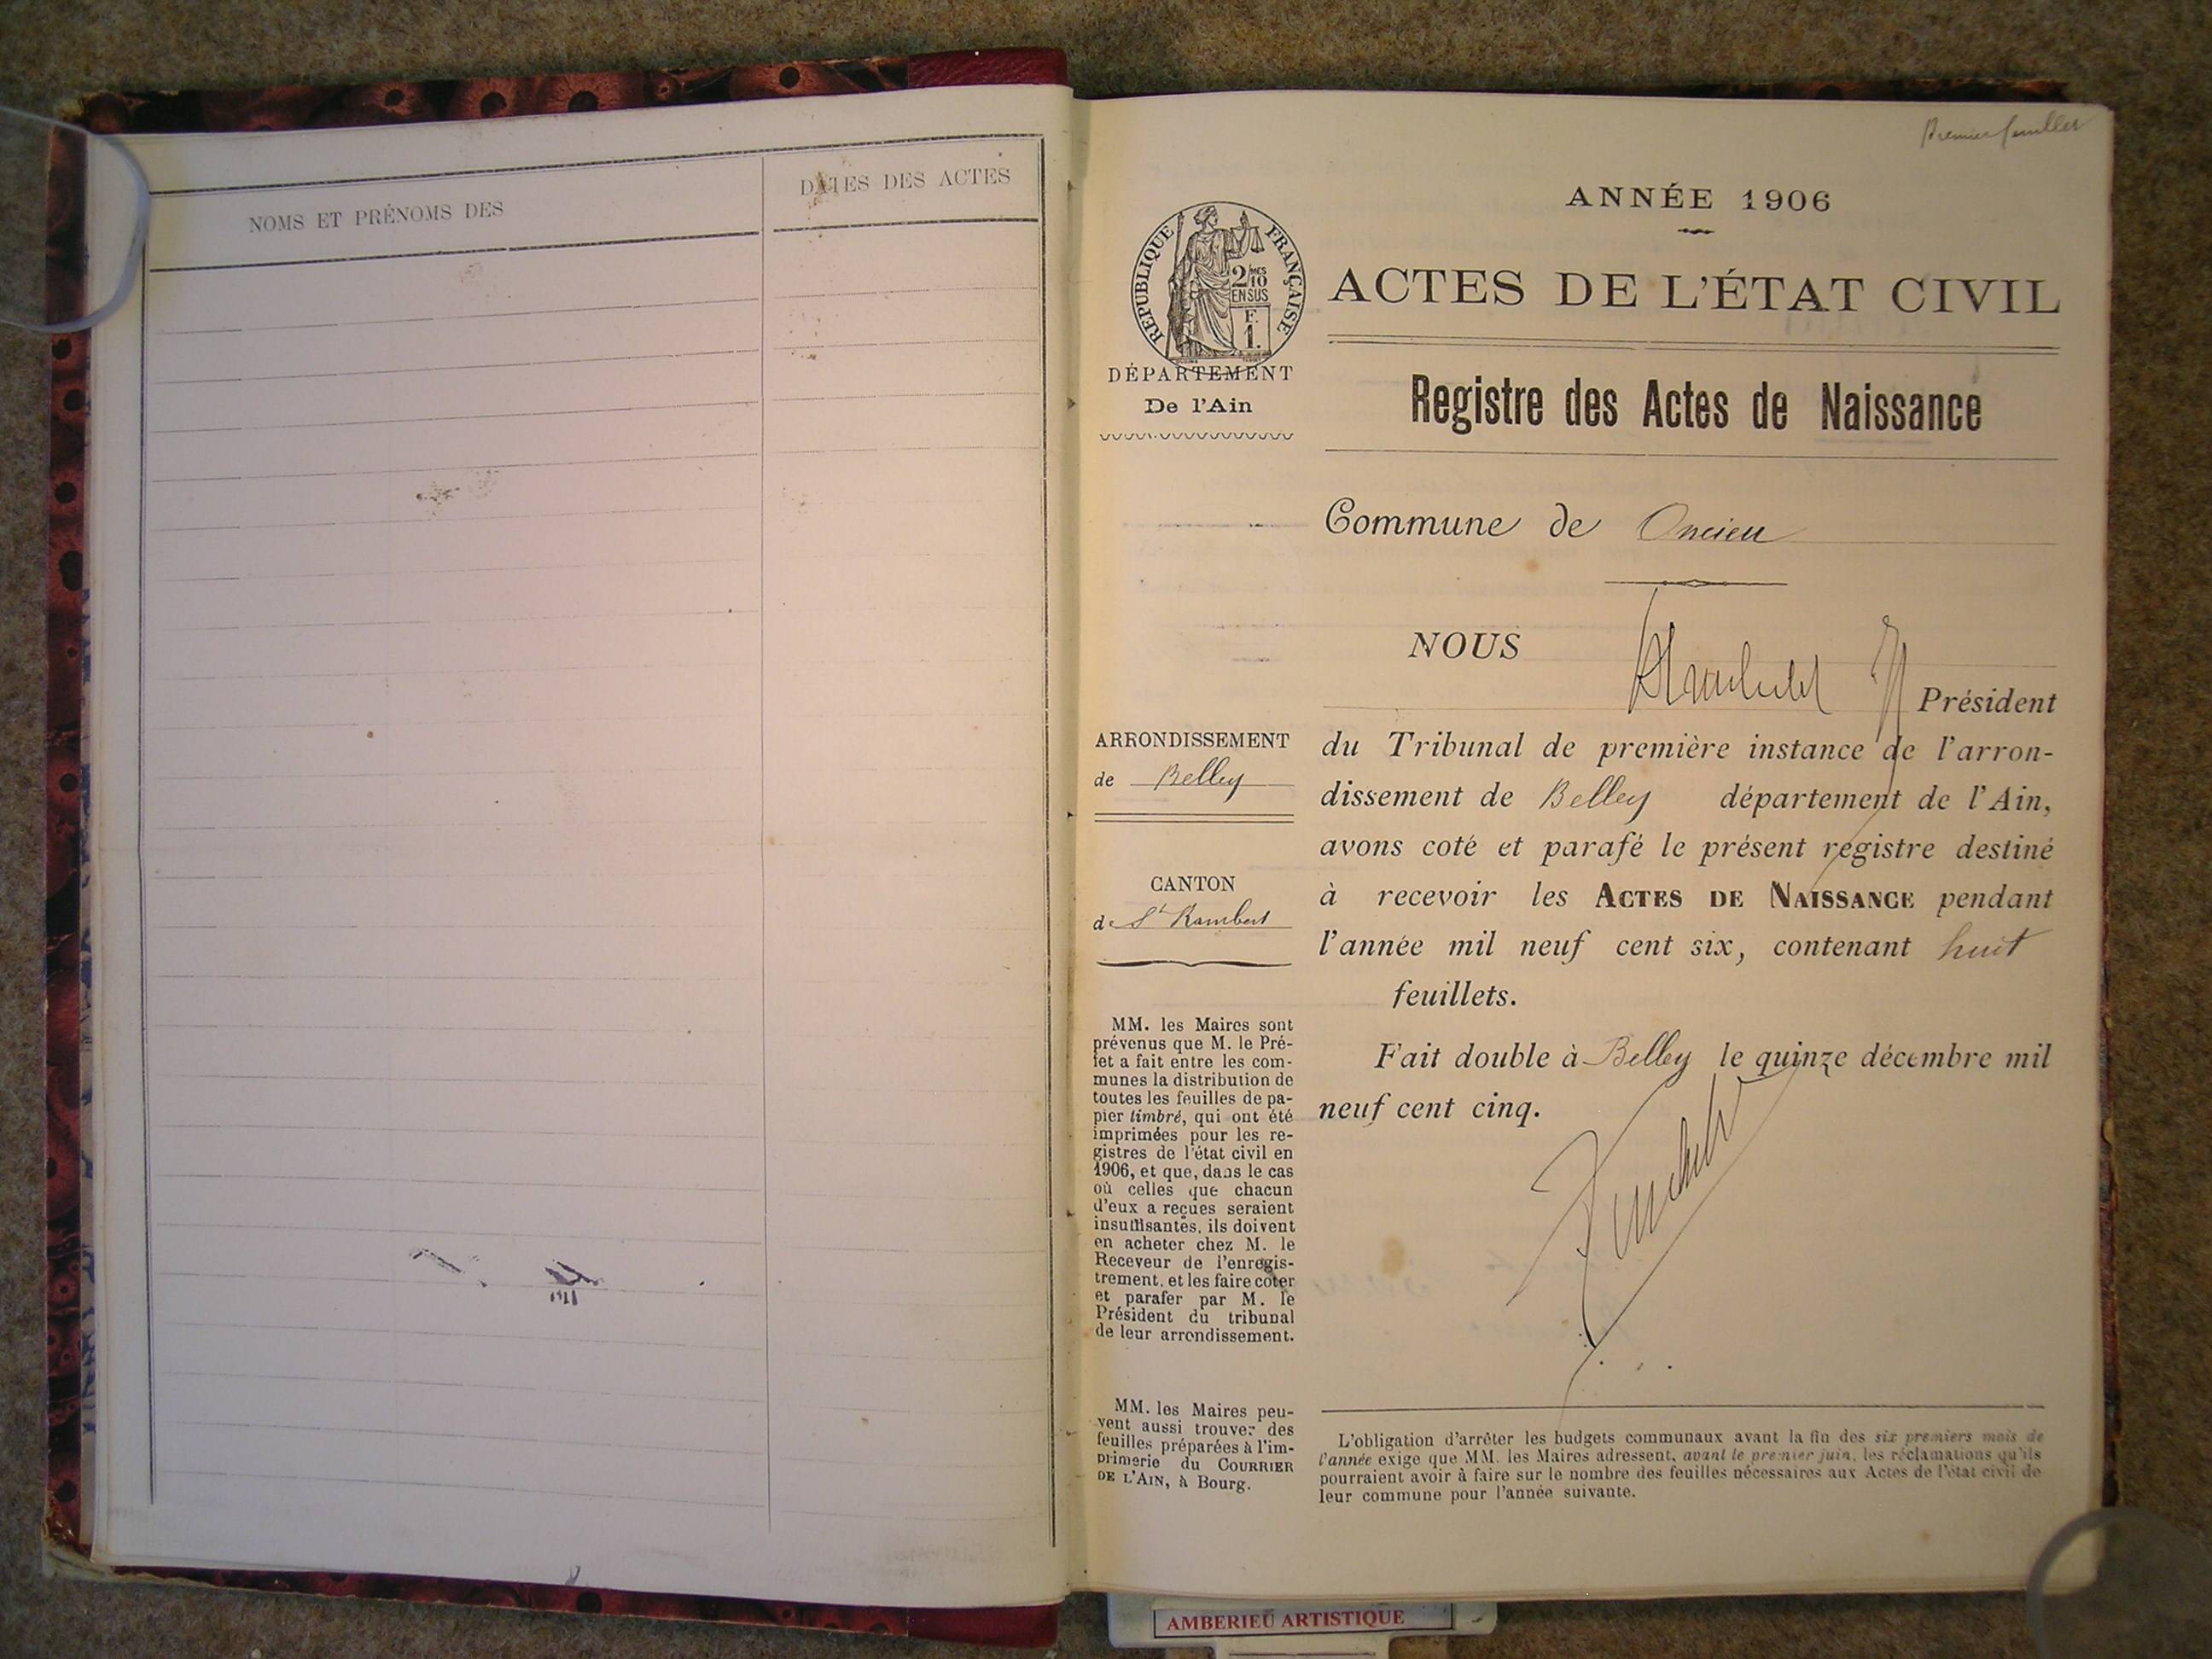 NOMS ET PRÉNOMS DES
DATES DES ACTES
Premier feuillet
ANNÉE 1906
RÉPUBLIQUE FRANÇAISE
2/10
EN SUS
F.
1.
ACTES DE L'ÉTAT CIVIL
DÉPARTEMENT
De l'Ain
Registre des Actes de Naissance
Commune de Oncieu
NOUS
Président
du Tribunal de première instance de l'arron-
dissement de Belley département de l'Ain,
avons coté et parafé le présent registre destiné
à recevoir les ACTES DE NAISSANCE pendant
l'année mil neuf cent six, contenant huit
feuillets.
Fait double à Belley le quinze décembre mil
neuf cent cinq.
ARRONDISSEMENT
de Belley
CANTON
de St Rambert
MM. les Maires sont
prévenus que M. le Pré-
fet a fait entre les com-
munes la distribution de
toutes les feuilles de pa-
pier timbré, qui ont été
imprimées pour les re-
gistres de l'état civil en
1906, et que, dans le cas
où celles que chacun
d'eux a reçues seraient
insuffisantes, ils doivent
en acheter chez M. le
Receveur de l'enregis-
trement, et les faire coter
et parafer par M. le
Président du tribunal
de leur arrondissement.
MM. les Maires peu-
vent aussi trouver des
feuilles préparées à l'im-
primerie du COURRIER
DE L'AIN, à Bourg.
L'obligation d'arrêter les budgets communaux avant la fin des six premiers mois de
l'année exige que MM. les Maires adressent, avant le premier juin, les réclamations qu'ils
pourraient avoir à faire sur le nombre des feuilles nécessaires aux Actes de l'état civil de
leur commune pour l'année suivante.
AMBERIEU ARTISTIQUE